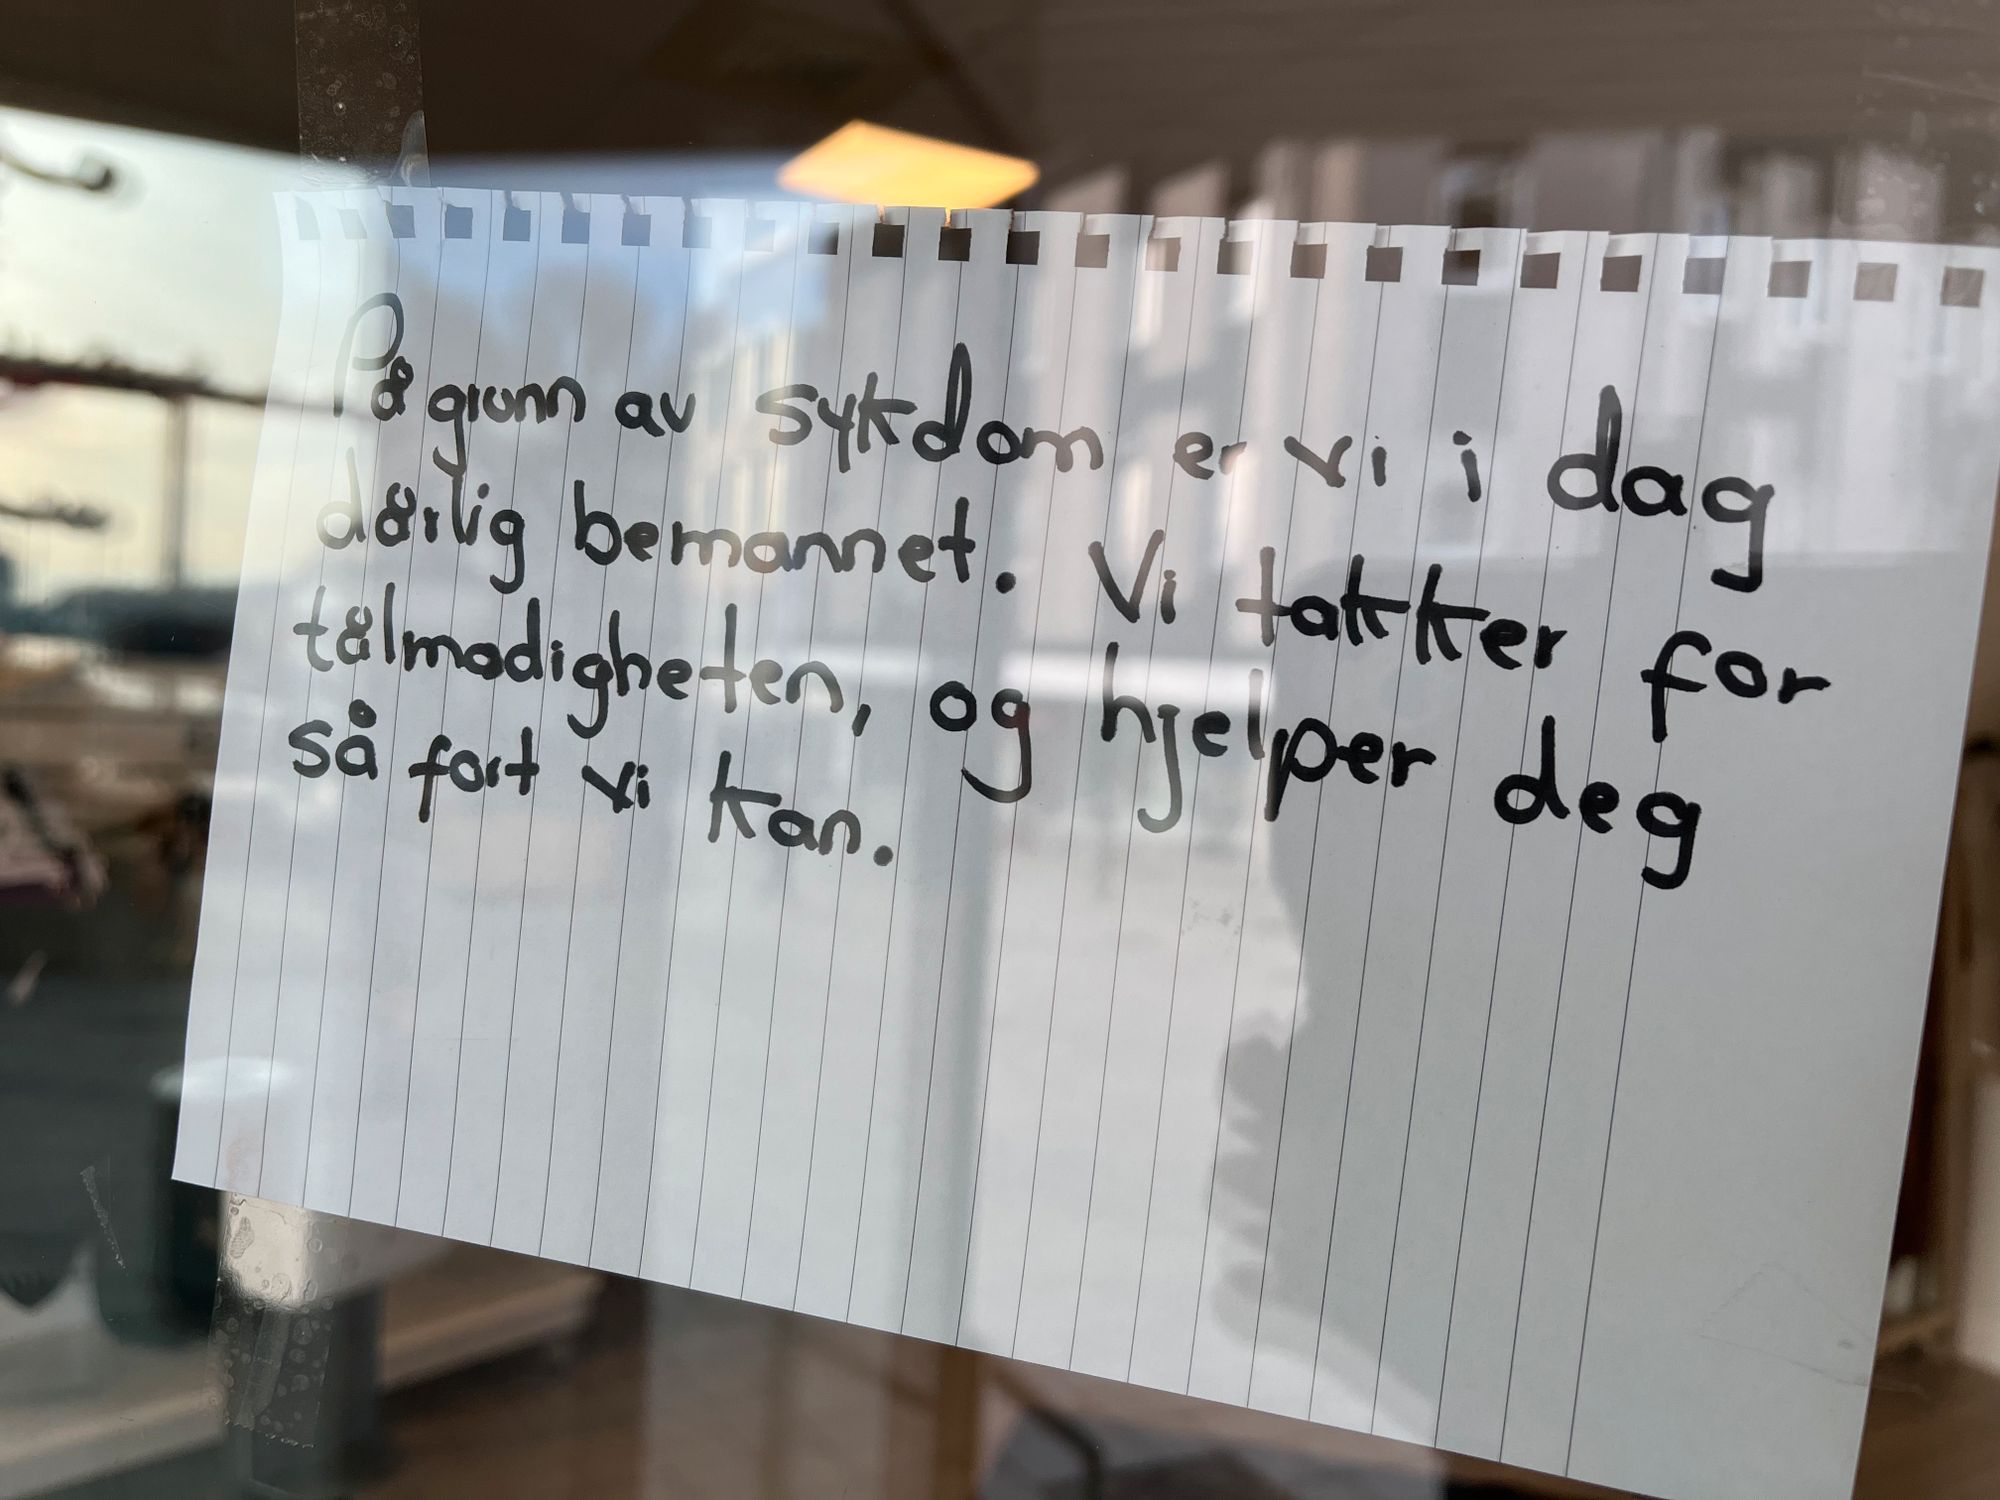 På grunn av sykdom er vi i dag
dårlig bemannet. Vi takker for
tålmodigheten, og hjelper deg
så fort vi kan.